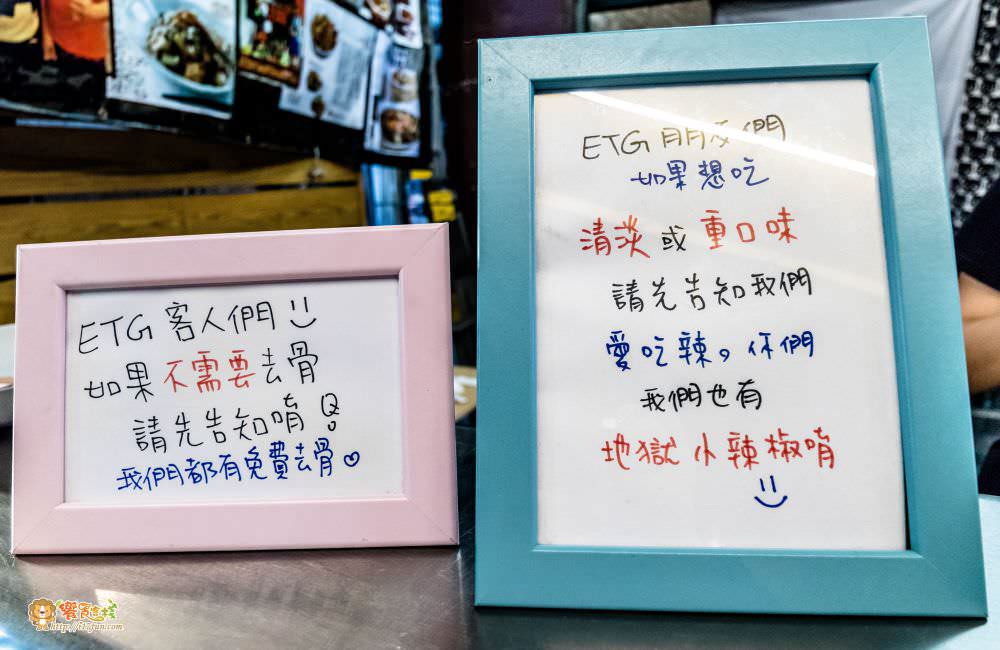 ETG 客人們
如果不需要去骨
請先告知唷
我們都有免費去骨
ETG 朋友們
如果想吃
清淡或重口味
請先告知我們
愛吃辣，你們
我們也有
地獄小辣椒唷
http://t17fun.com